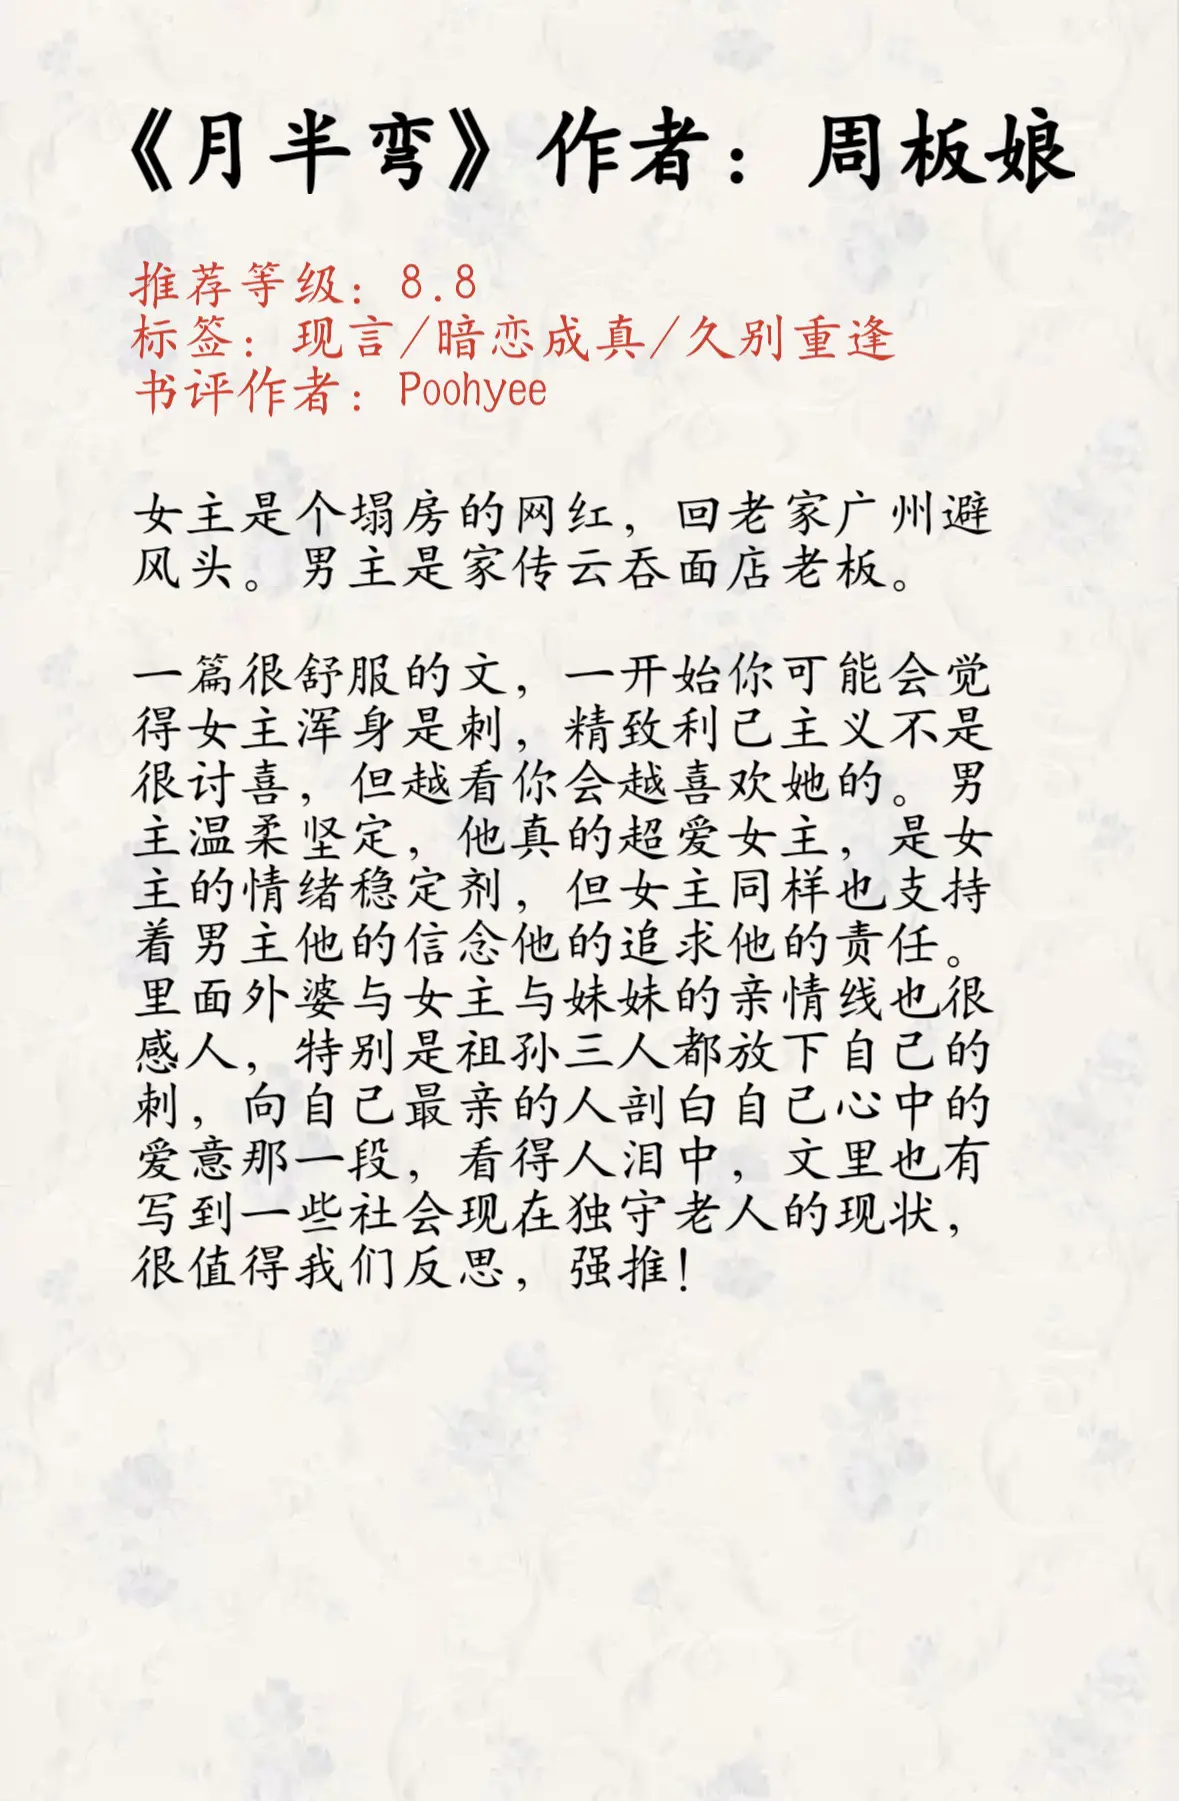 《月半弯》作者：周板娘
推荐等级：8.8
标签：现言/暗恋成真/久别重逢
书评作者：Poohyee
女主是个塌房的网红，回老家广州避
风头。男主是家传云吞面店老板。
一篇很舒服的文，一开始你可能会觉
得女主浑身是刺，精致利己主义不是
很讨喜，但越看你会越喜欢她的。男
主温柔坚定，他真的超爱女主，是女
主的情绪稳定剂，但女主同样也支持
着男主他的信念他的追求他的责任。
里面外婆与女主与妹妹的亲情线也很
感人，特别是祖孙三人都放下自己的
刺，向自己最亲的人剖白自己心中的
爱意那一段，看得人泪中，文里也有
写到一些社会现在独守老人的现状，
很值得我们反思，强推！